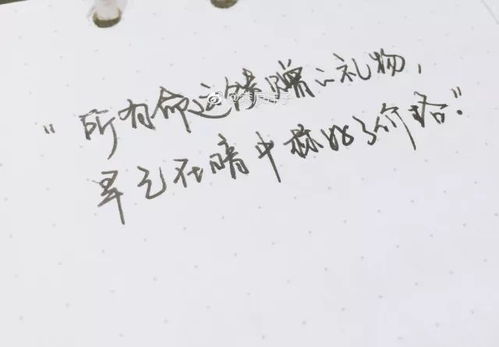 “所有命运馈赠的礼物，
早已在暗中标好了价格。”